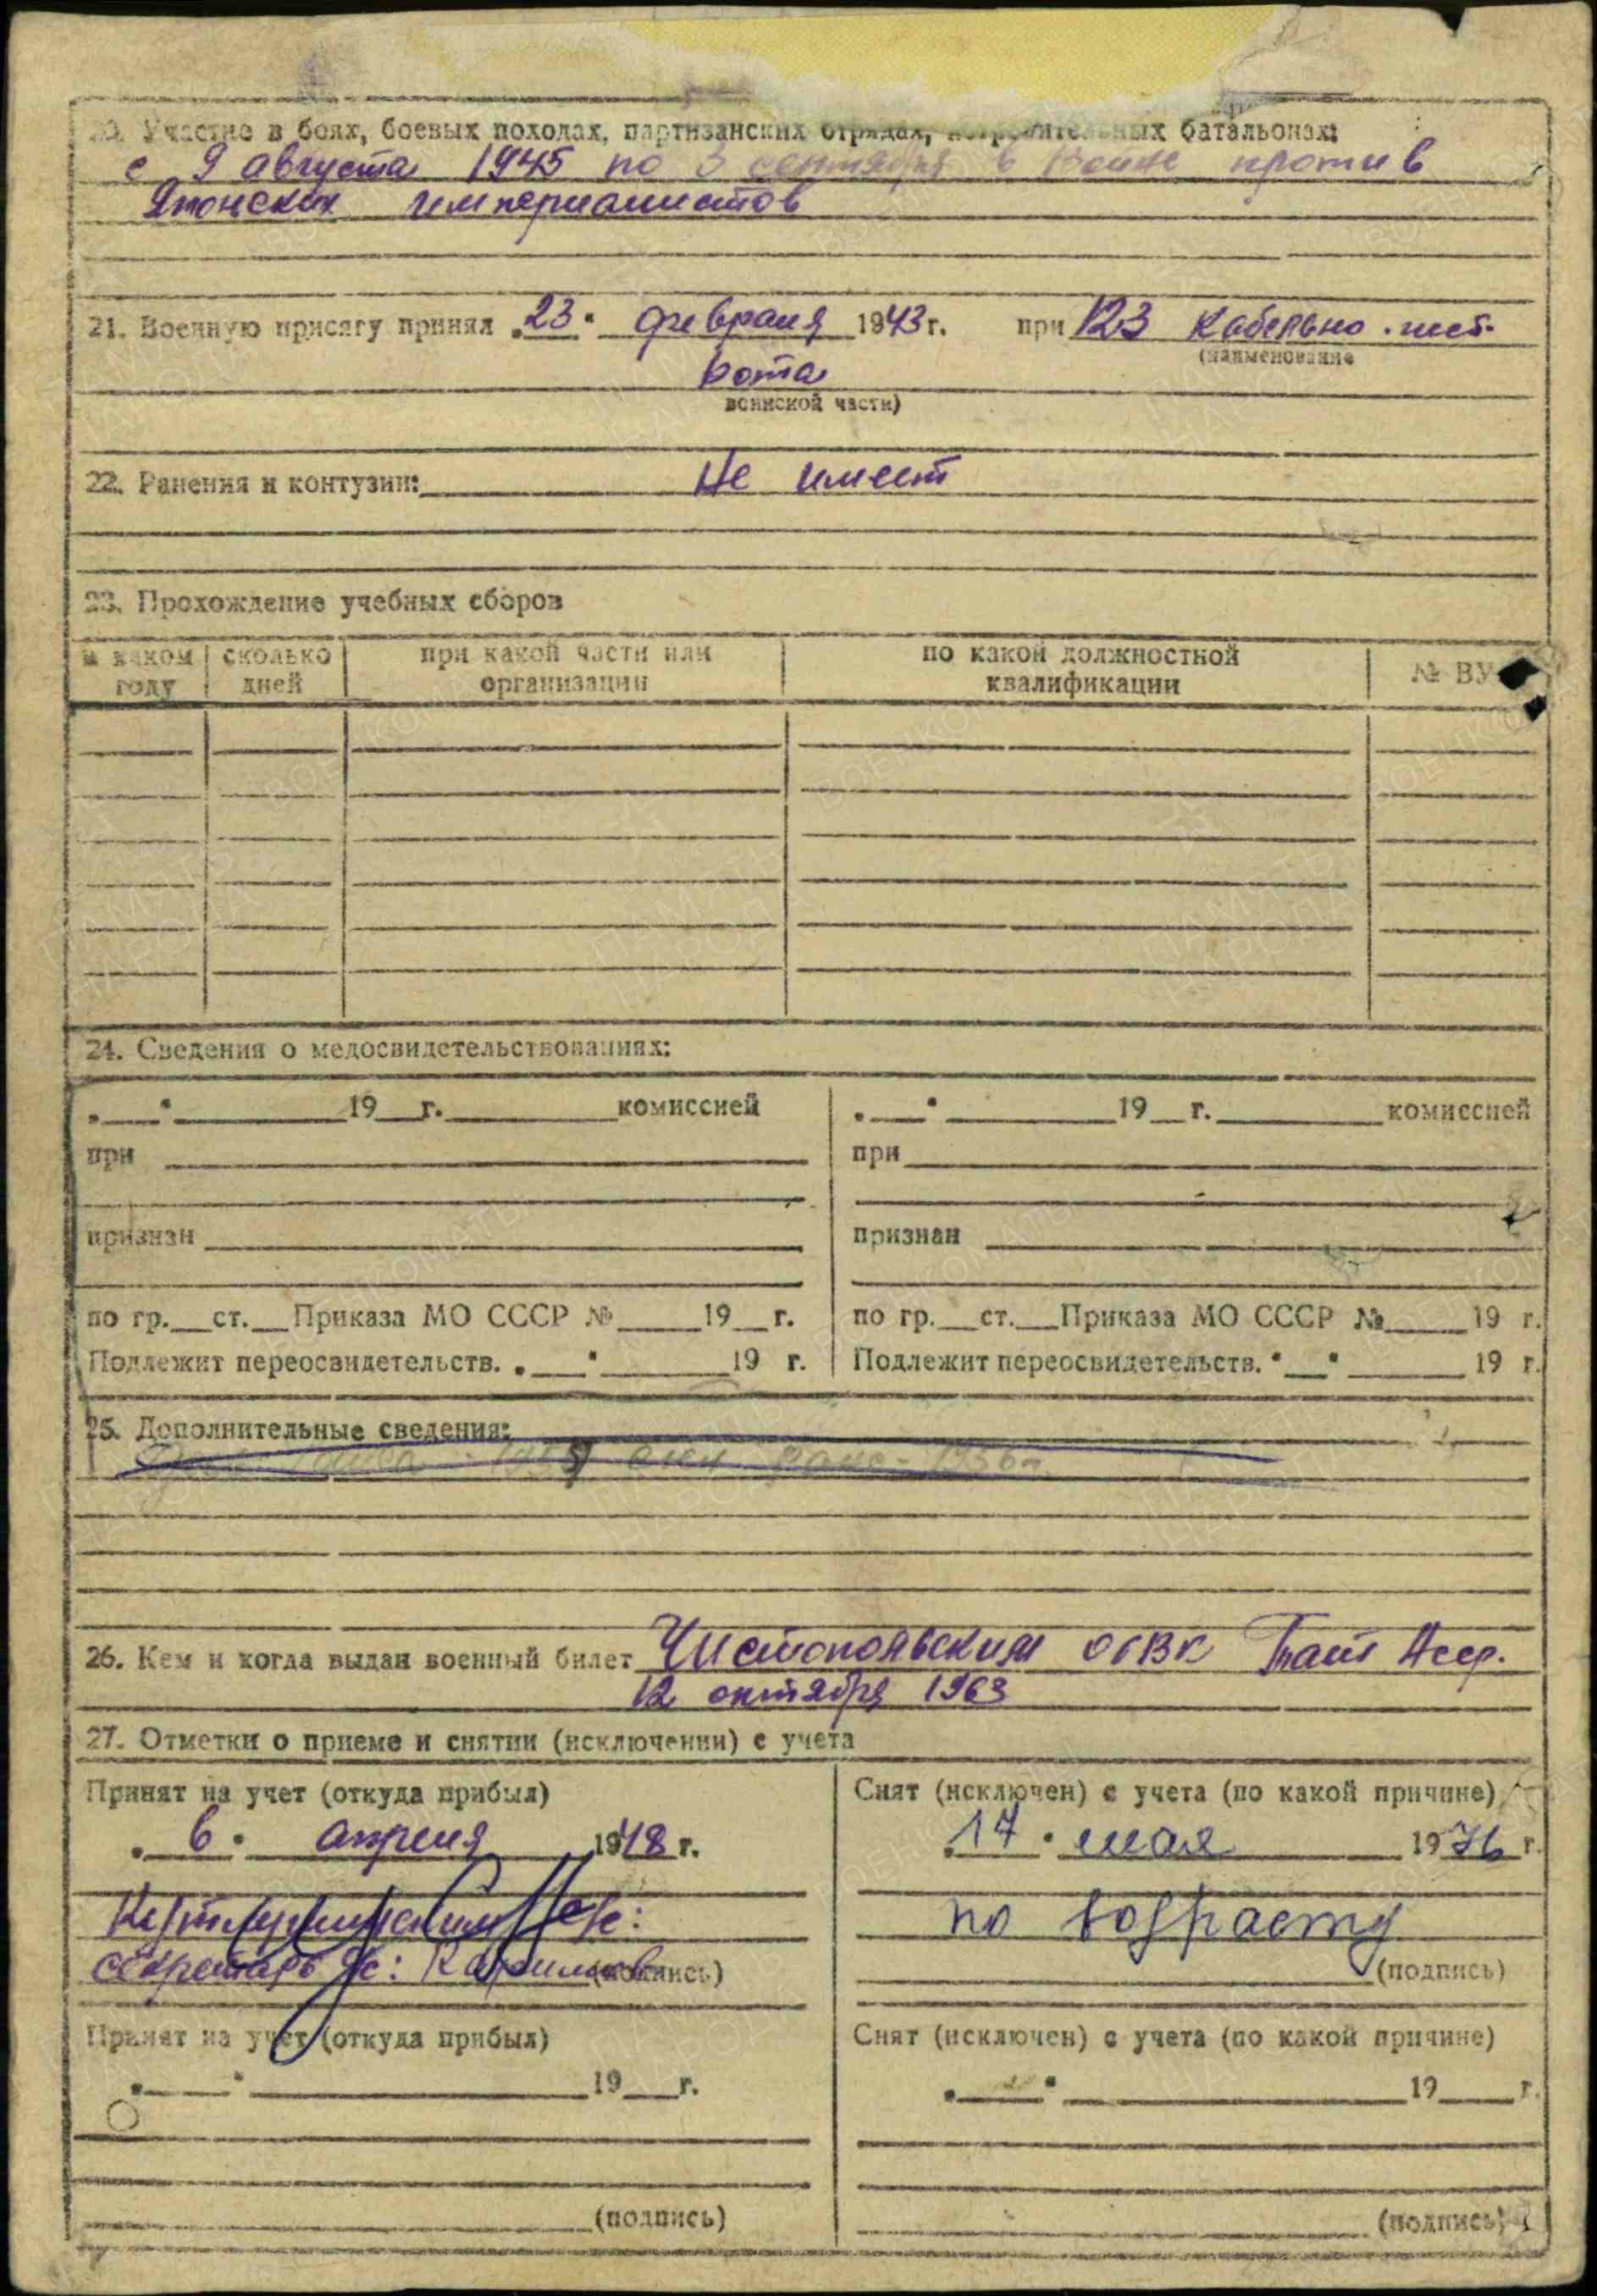 20. Участие в боях, боевых походах, партизанских отрядах, истребительных батальонах:
с 9 августа 1945 по 3 сентября в войне против
Японских империалистов
21. Военную присягу принял „23“ февраля 1943 г. при 123 Кабельно-шест.
(наименование
рота
воинской части)
22. Ранения и контузии: Не имеет
23. Прохождение учебных сборов
в каком году | сколько дней | при какой части или организации | по какой должностной квалификации | № ВУС
24. Сведения о медосвидетельствованиях:
„__“ ____ 19__г. ____ комиссией | „__“ ____ 19__г. ____ комиссией
при | при
признан | признан
по гр.__ст.__Приказа МО СССР №____19__г. | по гр.__ст.__Приказа МО СССР №____19 г.
Подлежит переосвидетельств. „__“ ____19 г. | Подлежит переосвидетельств. „__“ ____19 г.
25. Дополнительные сведения:
26. Кем и когда выдан военный билет Чистопольским ОГВК Тат Асср.
12 октября 1963
27. Отметки о приеме и снятии (исключении) с учета
Принят на учет (откуда прибыл) | Снят (исключен) с учета (по какой причине)
„6“ апреля 1948 г. | „17“ мая 1976 г.
по возрасту
секретарь с/с: (подпись) | (подпись)
Принят на учет (откуда прибыл) | Снят (исключен) с учета (по какой причине)
„__“ ____19__г. | „__“ ____19__г.
(подпись) | (подпись)